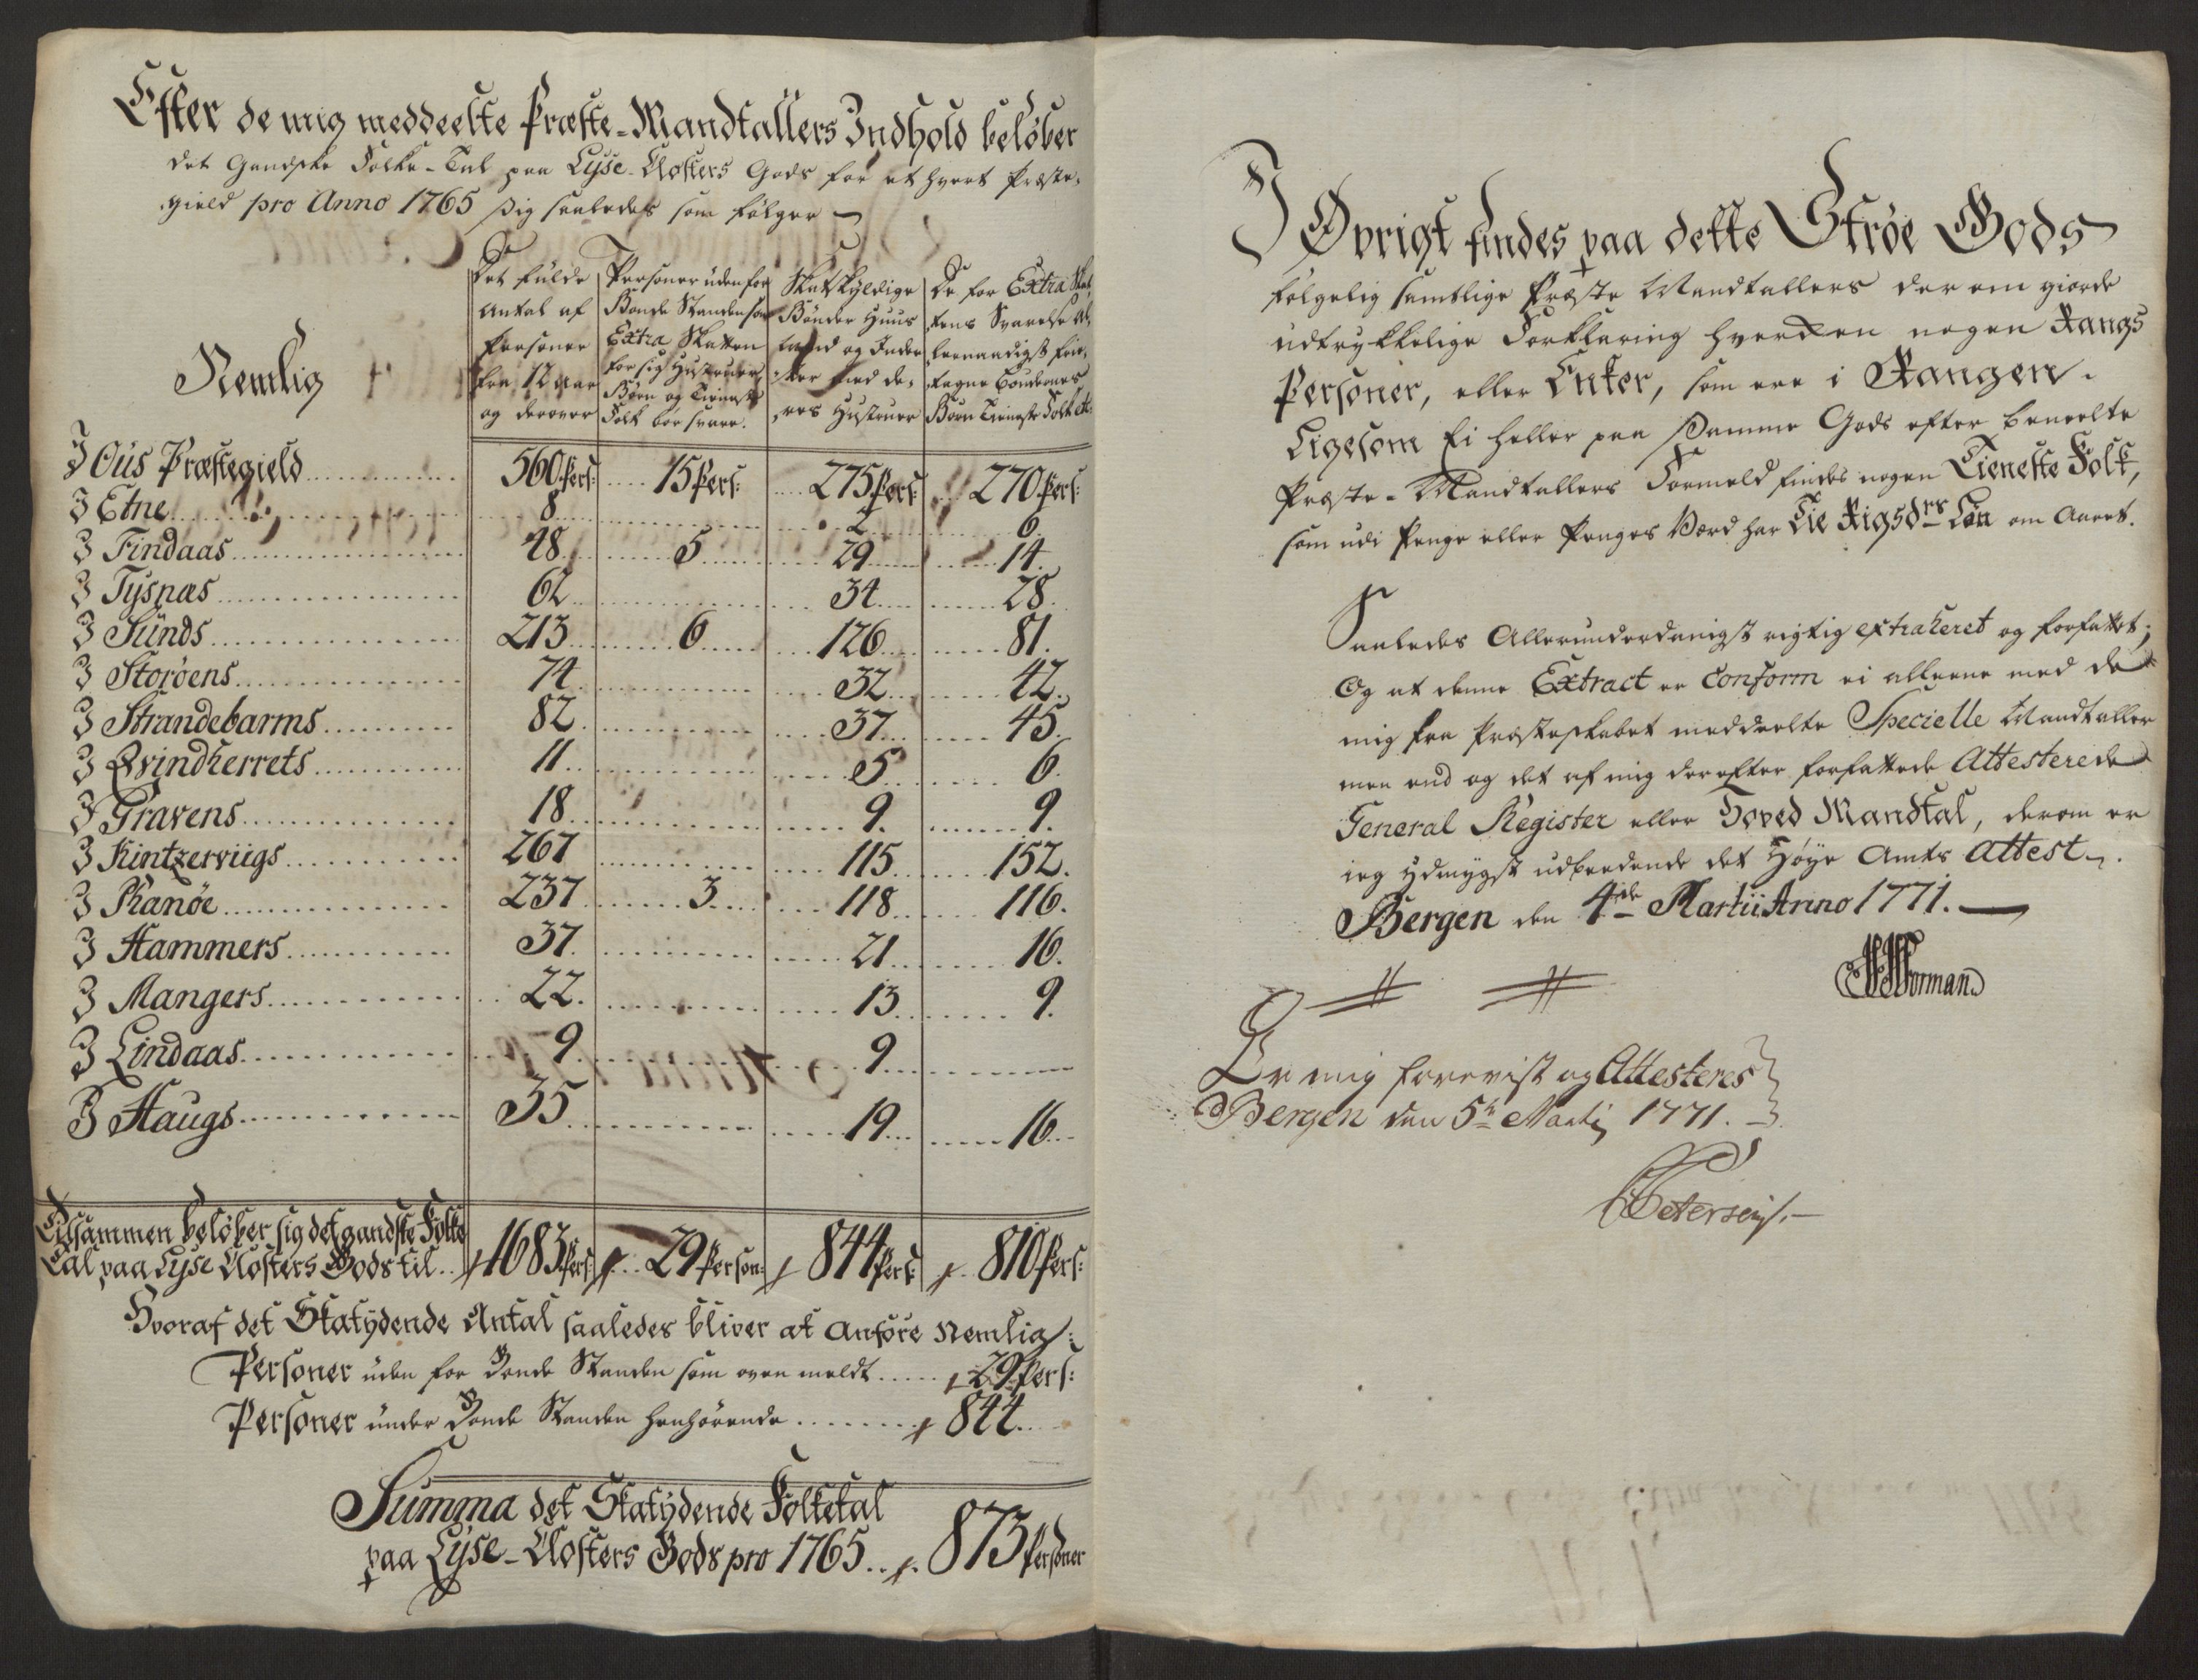 Efter de mig meddeelte Præste-Mandtallers Indhold beløber
det Gandske Folke-Tal paa Lyse-Closters Gods for et hvert Præste-
gield pro Anno 1765 sig saaledes som følger
Nemlig
Det fulde Antal af Personer fra 12 aar og derover
Personer uden for Bonde Standen som Extra Skatten for sig Hustruer Børn og Tieneste Folk bør svare.
Skatskyldige Bønder Huus mænd og Inder ster med de- res Hustruer
De for Extra Skat- tens Svarelse al- lernaadigst frie- tagne Bøndernes Børn Tieneste Folk etc:
I Ous Præstegield 560 Pers: 15 Pers: 275 Pers: 270 Pers:
I Etne 8 2 6.
I Findaas 48 5 29 14.
I Tysnæs 62 34 28.
I Sunds 213 6 126 81.
I Storøens 74 32 42.
I Strandebarms 82 37 45.
I Qvindherrets 11 5 6.
I Gravens 18 9. 9.
I Kintzerviigs 267 115 152.
I Kanøe 237 3 118 116.
I Hammers 37. 21 16.
I Mangers 22. 13 9.
I Lindaas 9 9
I Haugs 35 19 16
Tilsammen beløber sig det gandske Folke
Tal paa Lyse Closters Gods til 1683 Pers: 29 Person: 844 Pers: 810 Pers:
Hvoraf det Skatydende Antal saaledes bliver at Anføre Nemlig:
Personer uden for Bonde Standen som oven meldt 29 Pers:
Personer under Bonde Standen henhørende 844.
Summa det Skatydende Folketal
paa Lyse-Closters Gods pro 1765 873 Personer
I Øvrigt findes paa dette Strøe Gods
følgelig samtlige Præste Mandtallers der om giorde
udtrykkelige Forklaring hverken nogen Rangs
Personer, eller Enker, som ere i Rangen.
Ligesom Ei heller paa samme Gods efter bemeelte
Præste-Mandtallers Formeld findes nogen Tieneste Folk,
som udi Penge eller Penges Værd har Tie Rigsdrs Løn om Aaret.
Saaledes Allerunderdanigst rigtig extraheret og forfattet;
Og at denne Extract er Conform ei alleene med de
mig fra Præsteskabet meddeelte Specielle Mandtaller
men end og det af mig derefter forfattede Attesterede
General Register eller Hoved Mandtal, derom er
ieg ydmygst udbeedende det Høye Amts Attest.
Bergen den 4de Martii Anno 1771.
Wormand
Er mig foreviist og Attesteres
Bergen den 5te Martij 1771.
Petersen